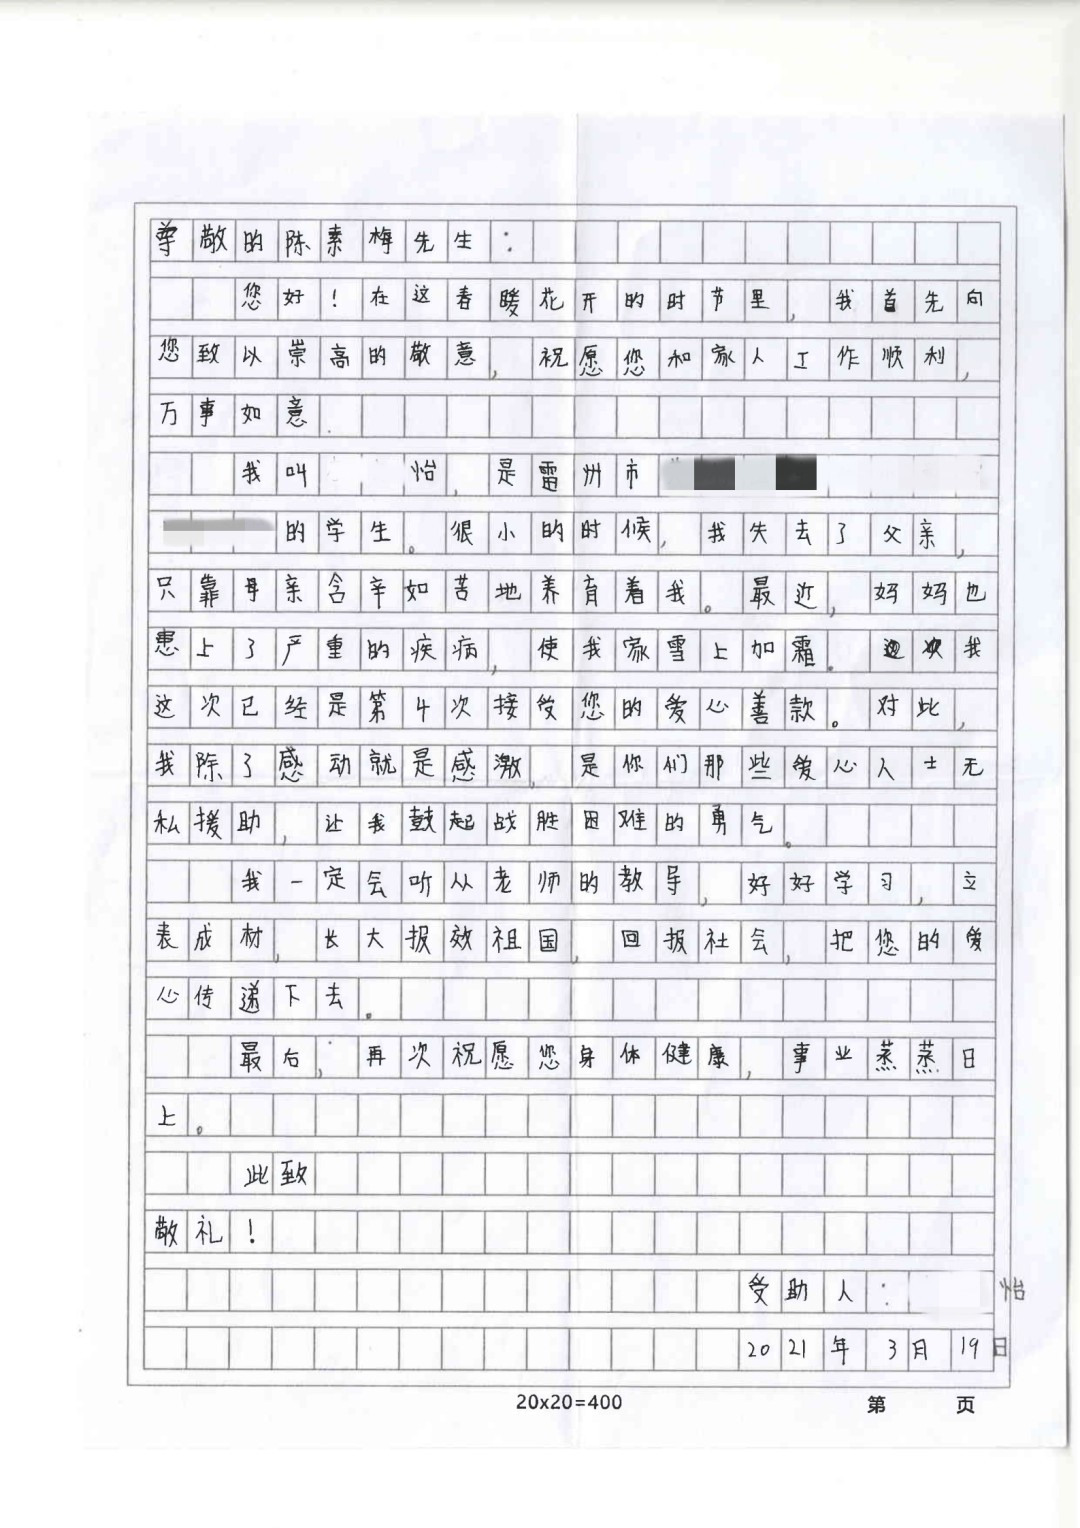 尊敬的陈素梅先生：
您好！在这春暖花开的时节里，我首先向
您致以崇高的敬意，祝愿您和家人工作顺利，
万事如意.
我叫 怡，是雷州市
的学生。很小的时候，我失去了父亲，
只靠母亲含辛如苦地养育着我。最近，妈妈也
患上了严重的疾病，使我家雪上加霜。 我
这次已经是第4次接受您的爱心善款。对此，
我除了感动就是感激，是你们那些爱心人士无
私援助，让我鼓起战胜困难的勇气。
我一定会听从老师的教导，好好学习，立
表成材，长大报效祖国，回报社会，把您的爱
心传递下去。
最后，再次祝愿您身体健康，事业蒸蒸日
上。
此致
敬礼！
受助人： 怡
2021年3月19日
20x20=400 第 页